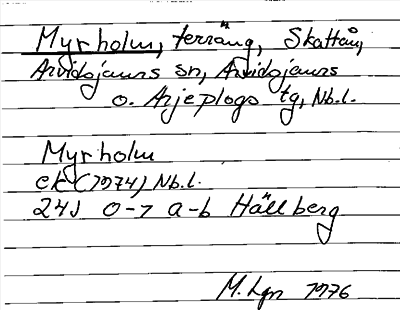 Myrholm, terräng, Skattån,
Arvidsjaurs sn, Arvidsjaurs
o. Arjeplogs tg, Nb.l.
Myrholm
ek (1974) Nb.l.
24J 0-7 a-b Hällberg
M. Lgn 1976